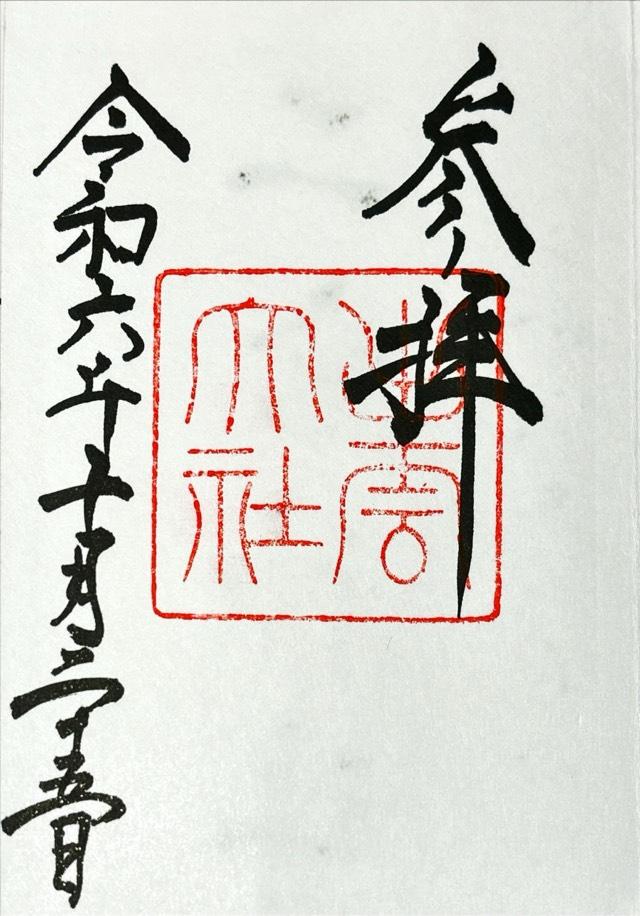 参拝
出雲
大社
令和六年十一月二十五日